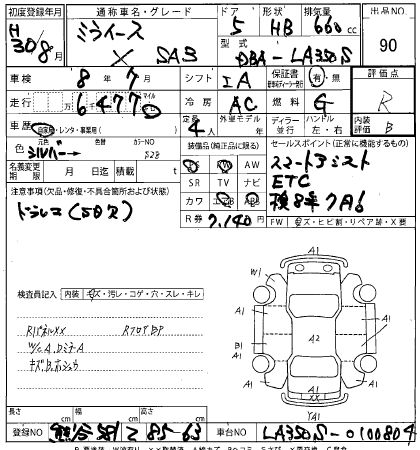 初度登録年月 通称車名・グレード ドア 形状 排気量 出品NO
H30/8月 ミライース 5 HB 660cc 90
X SAⅢ 型式 DBA-LA350S
車検 8年7月 シフト IA 保証書 有・無 評価点
走行 6477 マイル 冷房 AC 燃料 G R
車歴 自家用・レンタ・事業用( ) 定員 4人 外装モデル ディーラー 並行 ハンドル 左・右 内装評価 B
色 元色 シルバー カラーNO S28 装備品(純正品に限る) セールスポイント(正常に機能するもの)
名義変更期限 月 日迄 積載量 t SR TV ナビ AW スマートアシスト
注意事項(欠品・修復・不具合箇所および状態) カワ エアB ABS ETC
ドラレコ(SD欠) R券 7,140円 検8年7月
FW キズ・ヒビ割・リペア跡・X要
検査員記入 内装 キズ・汚レ・コゲ・穴・スレ・キレ
RパネルXX RフロアBP
W/C A.ロミラーA
キズ.B.ホシュウ
A1
W1 A1
A1
B1 A2 A1
A1
A1
XX
YA1
長さ cm 幅 cm 高さ cm
登録NO 熊谷581 85-63 車台NO LA350S-0100804